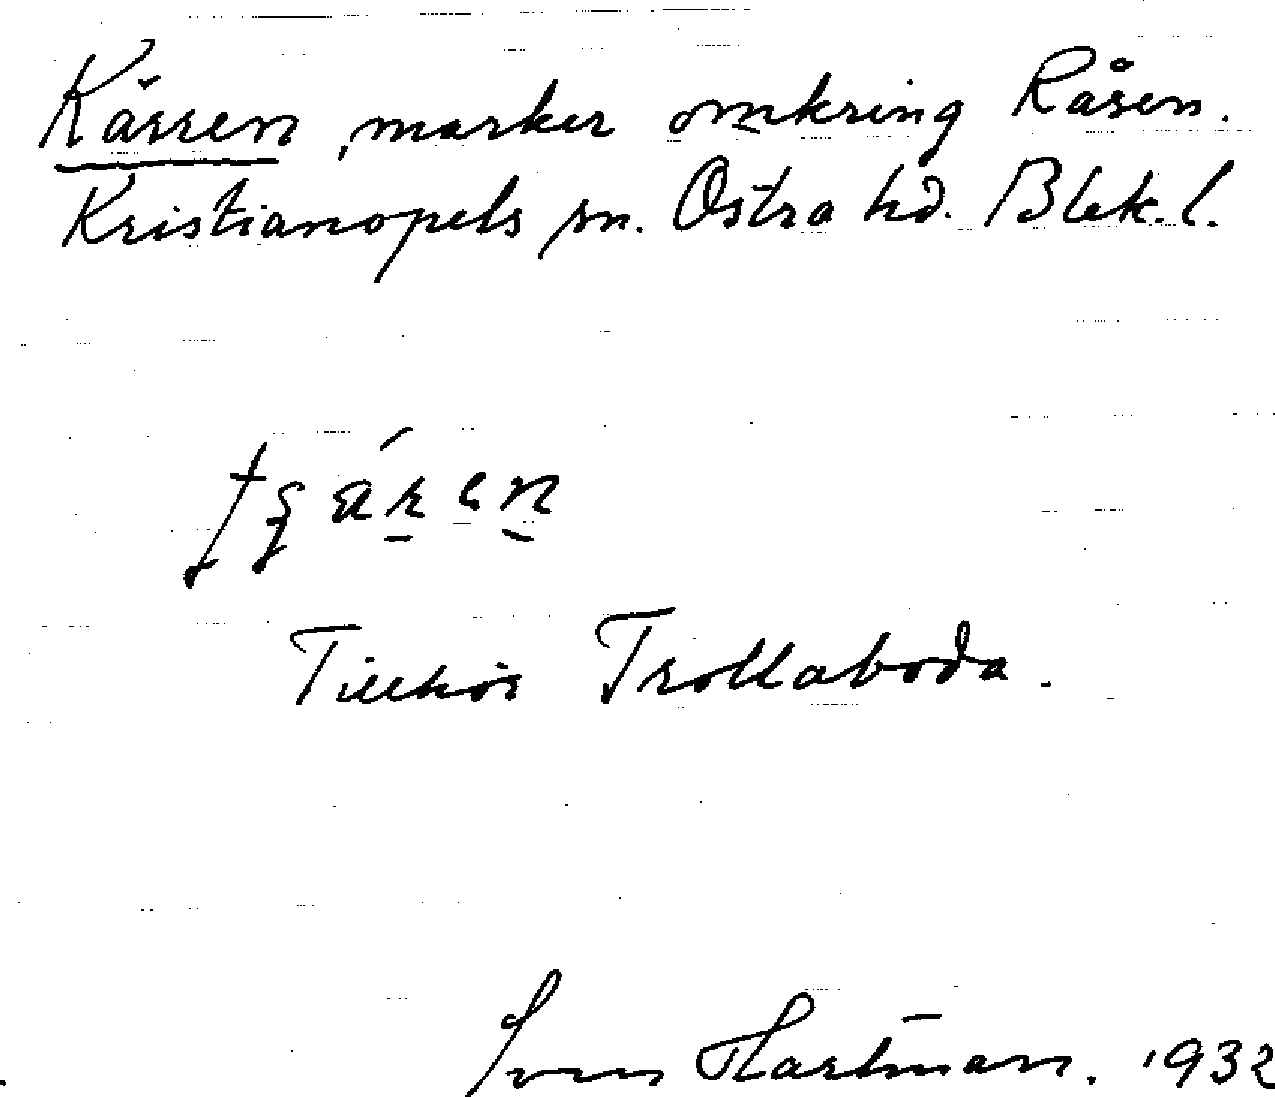 Kärren, marker omkring Råsen.
Kristianopels sn. Östra hd. Blek. l.
Tillhör Trollaboda.
Sven Hartman. 1932